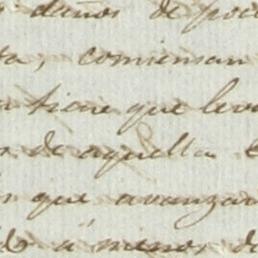 daños de poco
ta, comiensan
tiene que leva
de aquella
que avanzar
á menos de